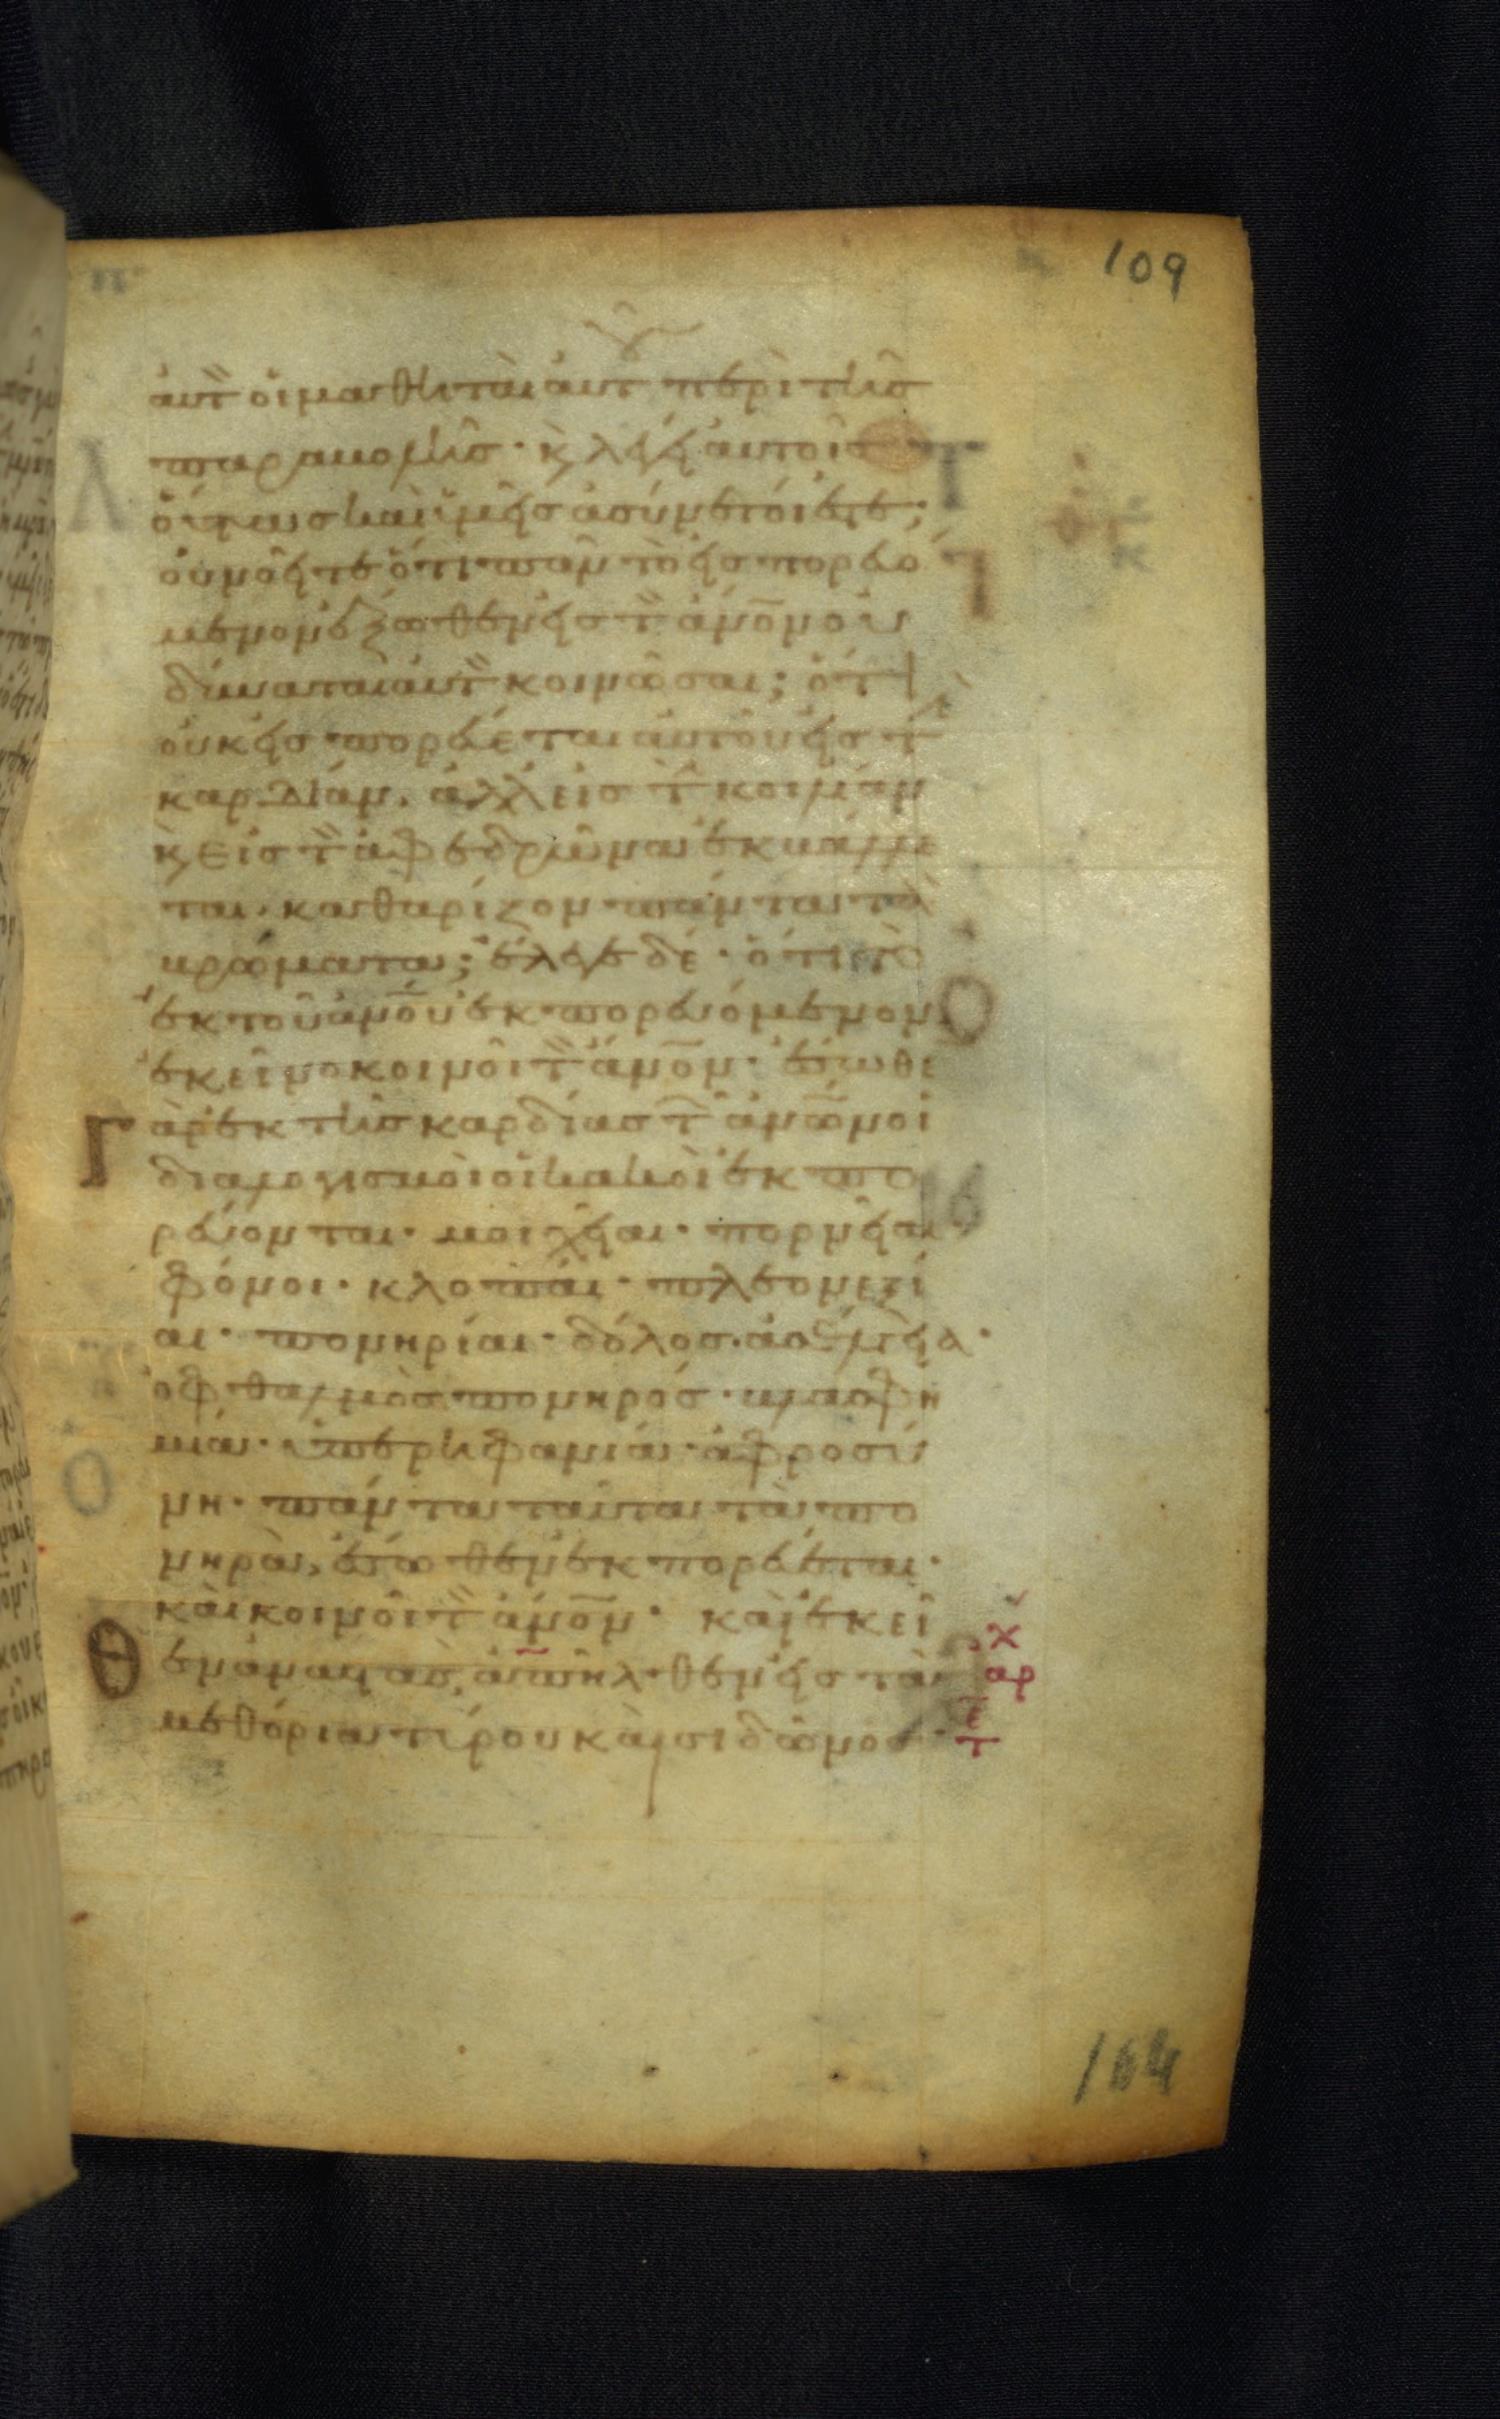 109
αὐτ οἱ μαθηταὶ αὐτ περὶ τῆς
παραβολῆς· κ λέγει αὐτοῖς
οὕτως καὶ ὑμεῖς ἀσύνετοί ἐστε;
οὐ νοεῖτε ὅτι πᾶν τὸ εἰσπορευό
μενον ἔξωθεν εἰς τ ἄνον οὐ
δύναται αὐτ κοινῶσαι; ὅτι
οὐκ εἰσπορεύεται αὐτοῦ εἰς τ
καρδίαν, ἀλλ εἰς τ κοιλίαν
κ εἰς τ ἀφεδρῶνα ἐκβάλλε
ται, καθαρίζον πάντα τὰ
βρώματα; ἔλεγε δέ· ὅτι τὸ
ἐκ τοῦ ἀνου ἐκπορευόμενον
ἐκεῖνο κοινοῖ τ ἄνον· ἔσωθε
Γ ὰρ ἐκ τῆς καρδίας τ ἀνων οἱ
διαλογισμοὶ οἱ κακοὶ ἐκπο
ρεύονται· μοιχεῖαι· πορνεῖαι
φόνοι· κλοπαί· πλεονεξί
αι· πονηρίαι· δόλος· ἀσέλγεια·
ὀφθαλμὸς πονηρός· βλασφη
μία· ὑπερηφανία· ἀφροσύ
νη· πάντα ταῦτα τὰ πο
νηρὰ, ἔσωθεν ἐκπορεύεται·
καὶ κοινοῖ τ ἄνον· καὶ ἐκεῖ
Θ εν ἀναστὰς, ἀπῆλθεν εἰς τὰ
μεθόρια τύρου καὶ σιδῶνος·
αρ
τε
164